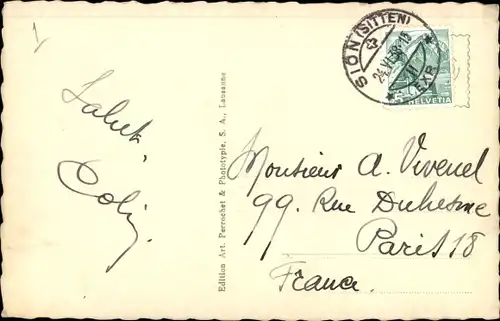 SION (SITTEN)
24.VI.38-15
EXP.
HELVETIA
Salut,
Edition Art. Perrochet & Phototypie, S. A., Lausanne
Monsieur A. Vivenel
99, Rue Duhesme
Paris 18
France.